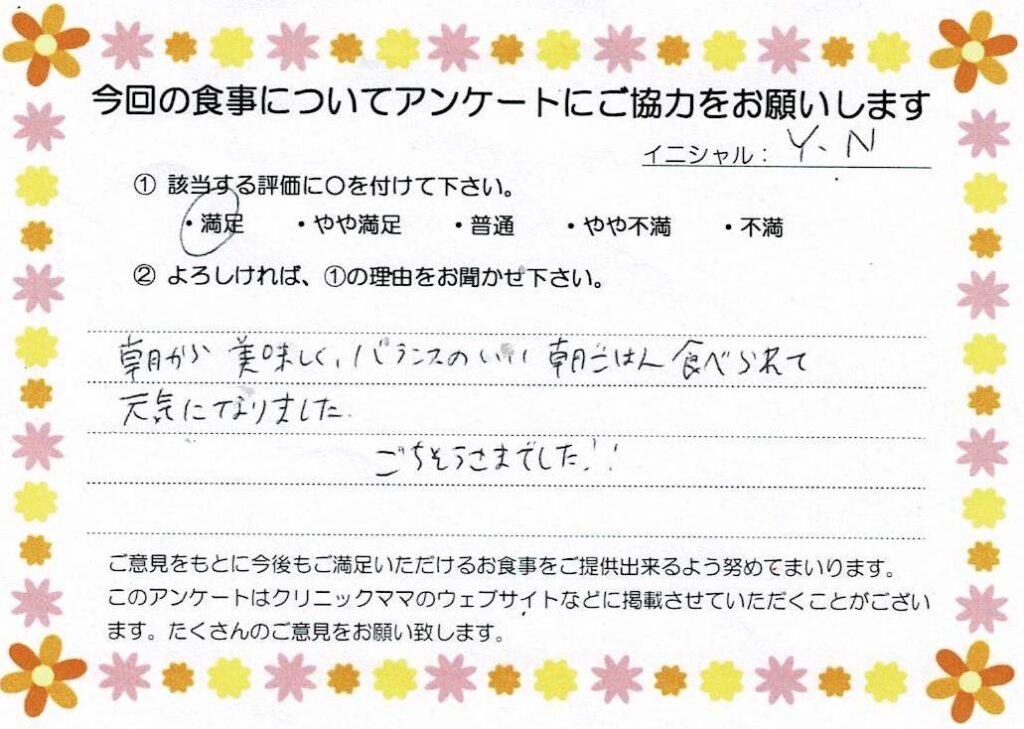 今回の食事についてアンケートにご協力をお願いします
イニシャル： Y、N
① 該当する評価に○を付けて下さい。
・満足 ・やや満足 ・普通 ・やや不満 ・不満
② よろしければ、①の理由をお聞かせ下さい。
朝から 美味しく、バランスのいい 朝ごはん 食べられて
元気になりました。
ごちそうさまでした！！
ご意見をもとに今後もご満足いただけるお食事をご提供出来るよう努めてまいります。
このアンケートはクリニックママのウェブサイトなどに掲載させていただくことがござい
ます。たくさんのご意見をお願い致します。